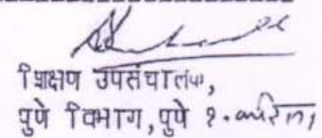 शिक्षण उपसंचालक,
पुणे विभाग, पुणे १. करिता